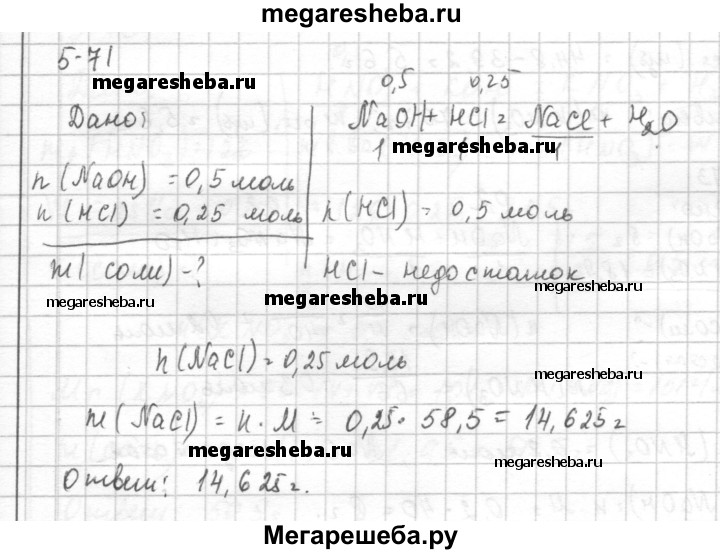 megaresheba.ru
5-71
megaresheba.ru
0,5 0,25
Дано:
NaOH + HCl = NaCl + H2O
1 megaresheba.ru 1
n(NaOH) = 0,5 моль
n(HCl) = 0,25 моль
n(HCl) = 0,5 моль
m(соли) - ?
HCl - недостаток
megaresheba.ru megaresheba.ru megaresheba.ru
n(NaCl) = 0,25 моль
m(NaCl) = n · M = 0,25 · 58,5 = 14,625 г
megaresheba.ru megaresheba.ru
Ответ: 14,625 г.
Мегарешеба.ру